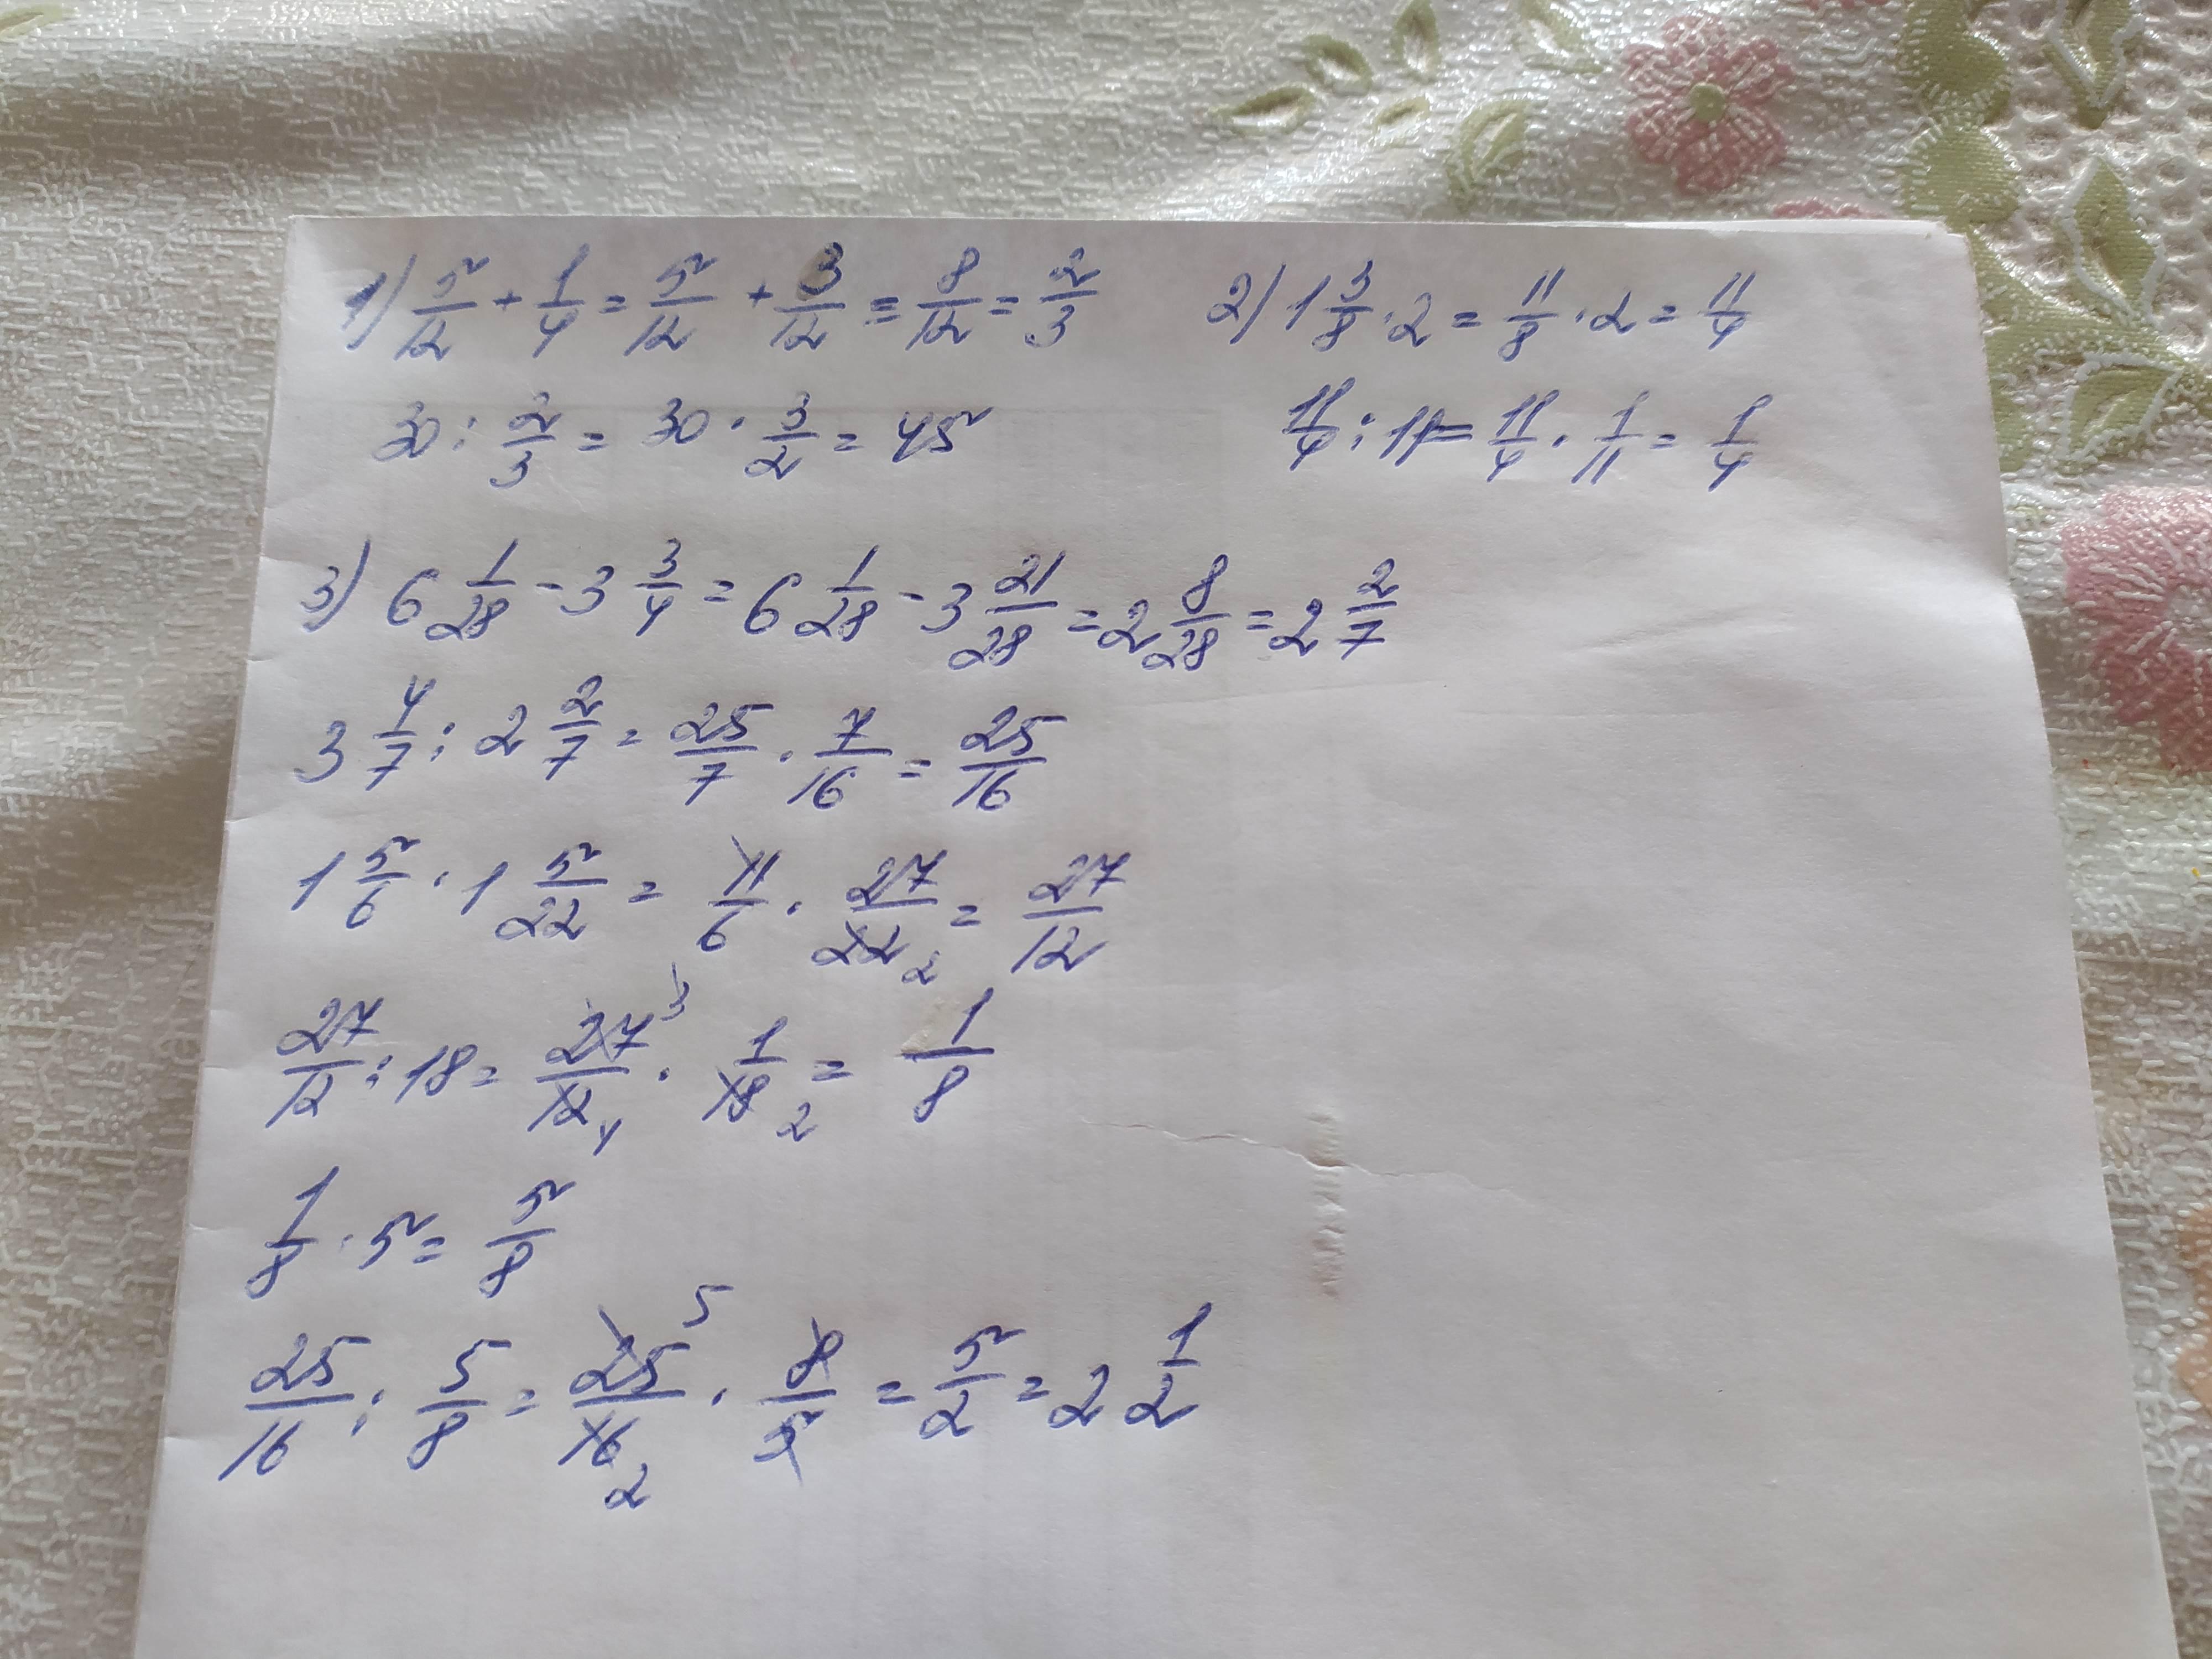 1) 5/12 + 1/4 = 5/12 + 3/12 = 8/12 = 2/3
30 : 2/3 = 30 · 3/2 = 45
2) 1 3/8 · 2 = 11/8 · 2 = 11/4
11/4 : 11 = 11/4 · 1/11 = 1/4
3) 6 1/28 - 3 3/4 = 6 1/28 - 3 21/28 = 2 8/28 = 2 2/7
3 4/7 : 2 2/7 = 25/7 · 7/16 = 25/16
1 5/6 · 1 5/22 = 11/6 · 27/22 2 = 27/12
27/12 : 18 = 27 3/12 4 · 1/18 2 = 1/8
1/8 · 5 = 5/8
25/16 : 5/8 = 25 5/16 2 · 8/5 = 5/2 = 2 1/2